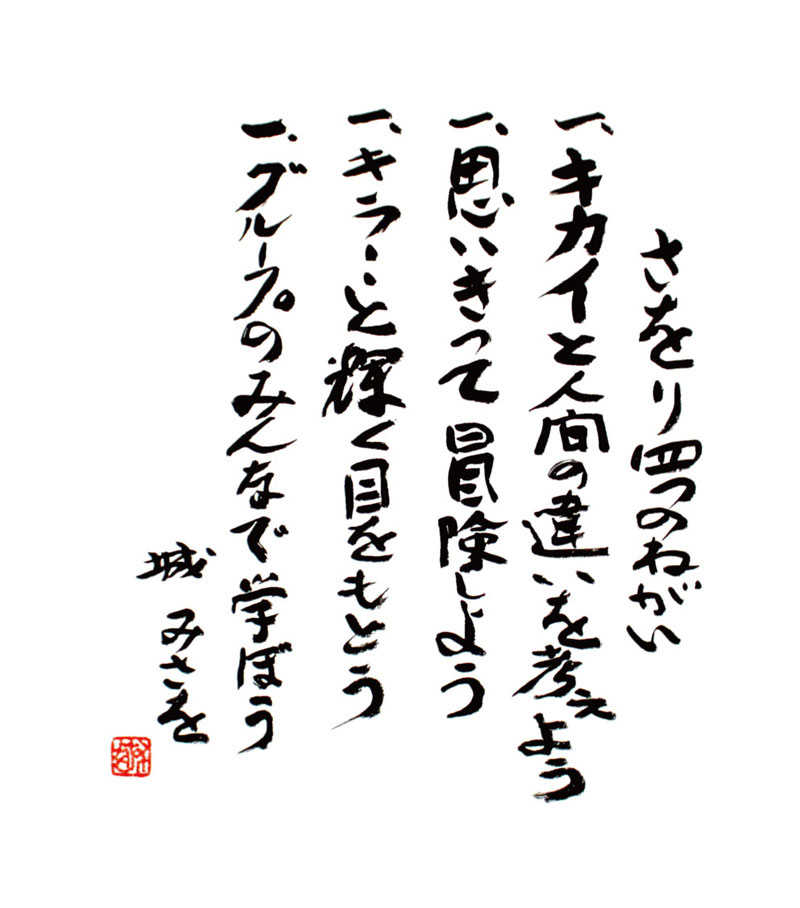 さをり四つのねがい
一、キカイと人間の違いを考えよう
一、思いきって冒険しよう
一、キラキラと輝く目をもとう
一、グループのみんなで学ぼう
城 みさを